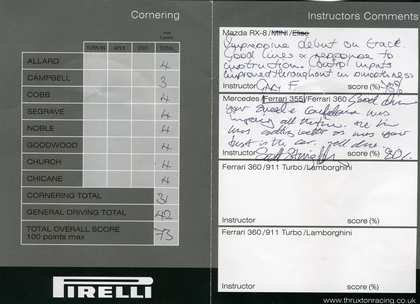 Cornering
Max 5 marks
TURN-IN APEX EXIT TOTAL
ALLARD 4
CAMPBELL 3
COBB 4
SEGRAVE 4
NOBLE 4
GOODWOOD 4
CHURCH 4
CHICANE 4
CORNERING TOTAL 31
GENERAL DRIVING TOTAL 42
TOTAL OVERALL SCORE
100 points max 73
PIRELLI
Instructors Comments
Mazda RX-8/MINI/Elise
Impressive debut on track.
Good lines & response to
instruction. Control inputs
improved throughout in smoothness
Instructor Gary F score (%)
Mercedes/Ferrari 355/Ferrari 360 Good drive
your speed & confidence was
all the time
was was your
best in the car. well done
Instructor score (%) 80%
Ferrari 360/911 Turbo/Lamborghini
Instructor score (%)
Ferrari 360/911 Turbo/Lamborghini
Instructor score (%)
www.thruxtonracing.co.uk